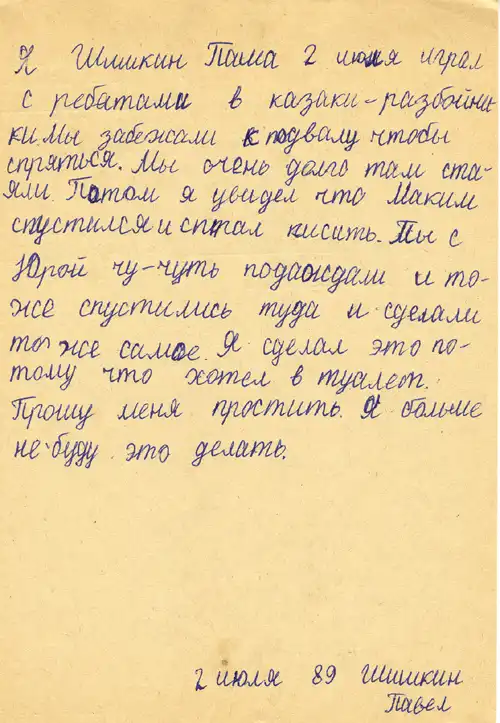 Я Шишкин Паша 2 июля играл
с ребятами в казаки-разбойни-
ки. Мы забежали к подвалу чтобы
спряться. Мы очень долго там ста-
яли. Потом я увидел что Маким
спустился и стал писить. Мы с
Юрой чу-чуть подаждали и то-
же спустились туда и сделали
то же самое. Я сделал это по-
тому что хотел в туалет.
Прошу меня простить. Я больше
не буду это делать.
2 июля 89 Шишкин
Павел